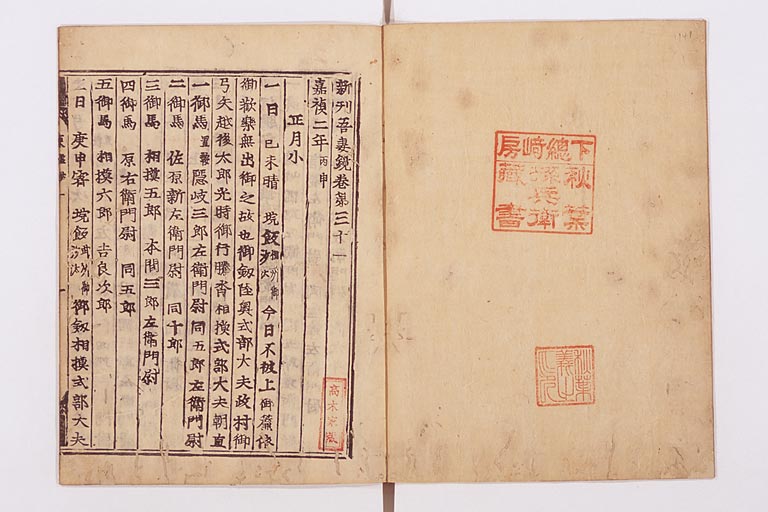 下總崎房
秋葉
孫兵衛
藏書
秋葉
義之
之印
新刊吾妻鏡卷第三十一
嘉禎二年丙申
正月小
一日 己未晴 垸飯相州御沙汰 今日不被上御簾依
御歡樂無出御之故也御劔陸奥式部大夫政村御
弓矢越後太郎光時御行騰沓相摸式部大夫朝直
一御馬置鞍 隠岐三郎左衛門尉 同五郎左衛門尉
二御馬 佐原新左衛門尉 同十郎
三御馬 相摸五郎 本間三郎左衛門尉
四御馬 原右衛門尉 同五郎
五御馬 相摸六郎 吉良次郎
二日 庚申霽 垸飯武州御沙汰 御劔相摸式部大夫
高木家藏